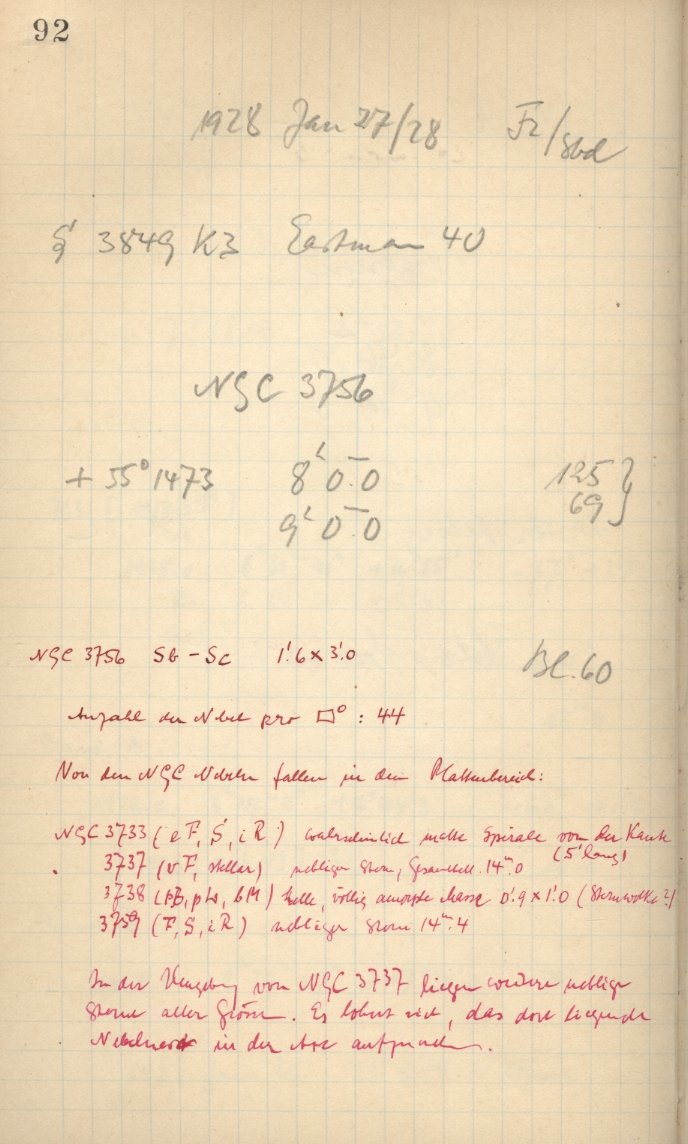 92
1928 Jan 27/28 Fz/Sbd
3849 K3 Eastman 40
NGC 3756
+ 55° 1473 8' 0.0 125 }
9' 0.0 69
NGC 3756 Sb - Sc 1'.6 × 3'.0 Bl. 60
Anzahl der Nebel pro □° : 44
Von den NGC Nebeln fallen in den Plattenbereich:
NGC 3733 (eF, S, iR) wahrscheinlich matte Spirale von der Kante (5' lang)
3737 (vF, stellar) nebliger Stern, Gesamthell. 14ᵐ.0
3738 (pB, pL, bM) helle, völlig amorphe Masse 0'.9 × 1'.0 (Sternwolke?)
3759 (F, S, iR) nebliger Stern 14ᵐ.4
In der Umgebung von NGC 3737 liegen weitere neblige
Sterne aller Grössen. Es lohnt sich, das dort liegende
in der